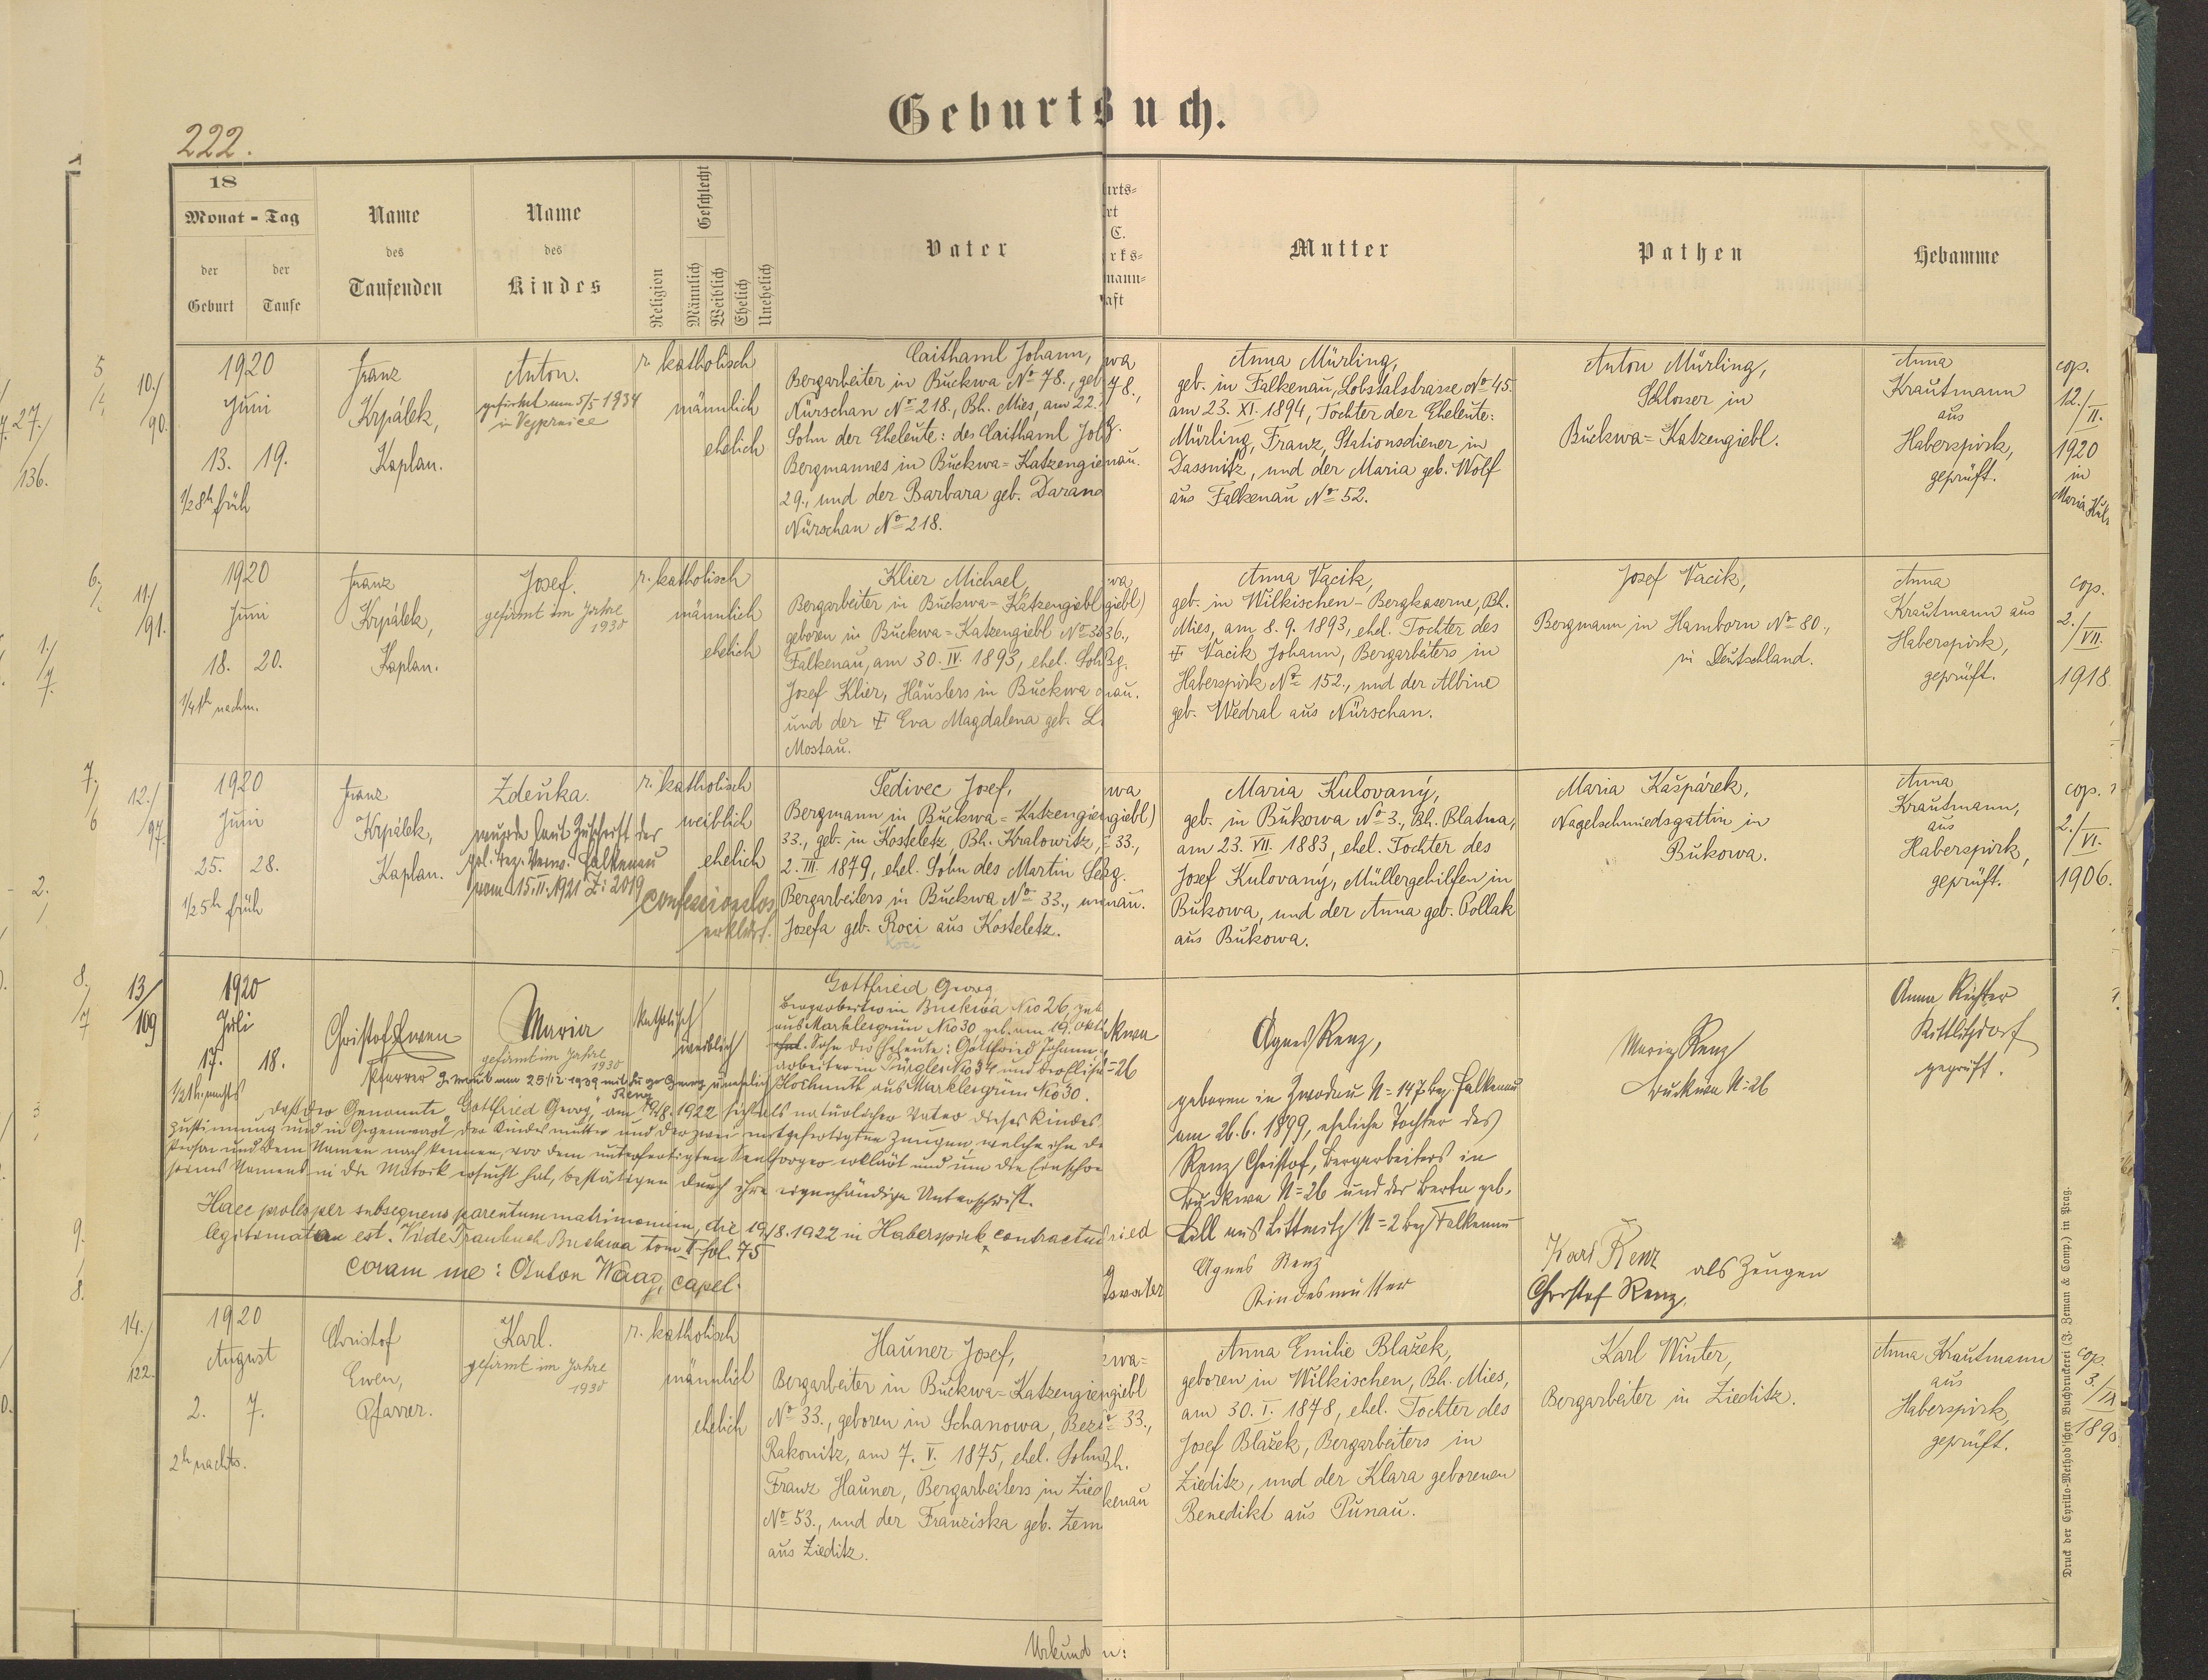 Geburtsuch.
222.
18
Monat - Tag
der Geburt
der Taufe
Name des Taufenden
Name des Kindes
Religion
Geschlecht
Männlich
Weiblich
Ehelich
Unehelich
Vater
urts=
rt
C.
rks=
mann=
aft
Mutter
Pathen
Hebamme
5
10./
90.
27./
136.
1920
Juni
13. 19.
1/2 8h früh
Franz
Krpálek,
Kaplan.
Anton.
gefirmt am 5/5 1934
in Vejprnice
r. katholisch
männlich
ehelich
Caithaml Johann,
Bergarbeiter in Buckwa No 78., geb
Nürschan No 218., Bh. Mies, am 22.
Sohn der Eheleute: des Caithaml Jo
Bergmannes in Buckwa=Katzengie
29., und der Barbara geb. Darand
Nürschan No 218.
wa
78.,
g.
nau.
Anna Mürling,
geb. in Falkenau, Lobstalstrasse No 45.
am 23. XI. 1894, Tochter der Eheleute:
Mürling, Franz, Stationsdiener in
Dassnitz, und der Maria geb. Wolf
aus Falkenau No 52.
Anton Mürling,
Schlosser in
Buckwa=Katzengiebl.
Anna
Krautmann
aus
Haberspirk,
geprüft.
cop.
12./
II.
1920
in
Maria
6.
11./
91.
1./
7.
1920
Juni
18. 20.
1/4 1h nachm.
Franz
Krpálek,
Kaplan.
Josef.
gefirmt im Jahre
1930
r. katholisch
männlich
ehelich
Klier Michael,
Bergarbeiter in Buckwa=Katzengiebl
geboren in Buckwa=Katzengiebl No 36
Falkenau, am 30. IV. 1893, ehel. Soh
Josef Klier, Häuslers in Buckwa
und der ‡ Eva Magdalena geb. L.
Mostau.
wa
giebl)
36.,
Bg.
nau.
Anna Vacik,
geb. in Wilkischen-Bergkaserne, Bh.
Mies, am 8. 9. 1893, ehel. Tochter des
‡ Vacik Johann, Bergarbeiters in
Haberspirk No 152., und der Albine
geb. Wedral aus Nürschan.
Josef Vacik,
Bergmann in Hamborn No 80.,
in Deutschland.
Anna
Krautmann aus
Haberspirk,
geprüft.
cop.
2./
VII.
1918.
7.
6
12./
97.
2.
1920
Juni
25. 28.
1/2 5h früh
Franz
Krpálek,
Kaplan.
Zdeňka.
wurde laut Zuschrift der
pol. Bez. Verw. Falkenau
vom 15. II. 1921 Z: 2019
confessionslos
erklärt.
r. katholisch
weiblich
ehelich
Šedivec Josef,
Bergmann in Buckwa=Katzengie
33., geb. in Kosteletz, Bh. Kralowitz,
2. III. 1879, ehel. Sohn des Martin Še
Bergarbeiters in Buckwa No 33., un
Josefa geb. Roci aus Kosteletz.
wa
giebl)
33.,
zg.
nau.
Maria Kulovaný,
geb. in Bukowa No 3., Bh. Blatna,
am 23. VII. 1883, ehel. Tochter des
Josef Kulovaný, Müllergehilfen in
Bukowa, und der Anna geb. Pollak
aus Bukowa.
Maria Kašpárek,
Nagelschmiedsgattin in
Bukowa.
Anna
Krautmann,
aus
Haberspirk,
geprüft.
cop.
2./
VI.
1906.
8.
7
13/
109
1920
Juli
17. 18.
1/2 1h nachts
Christof Ewen
Pfarrer
Maria
gefirmt im Jahre
1930
katholisch
weiblich
unehelich
Gottfried Georg
Bergarbeiter in Buckwa No 26, geb
aus Marklesgrün No 30 geb. am 19. Okt
Sohn der Eheleute: Gottfried Johann
arbeiter in Pürgles No 34 und
Hochmuth aus Marklesgrün No 30.
daß der Genannte „Gottfried Georg“ am 19/8. 1922 sich als natürlicher Vater dieses Kindes
Zustimmung und in Gegenwart der Kindesmutter und der zwei mitgefertigten Zeugen, welche ihn de
Person und dem Namen nach kennen, vor dem unterfertigten Seelsorger erklärt und um die Einschre
seines Namens in die Matrik ersucht hat, bestätigen durch ihre eigenhändige Unterschrift.
Haec proles per subsequens parentum matrimonium, die 19/8. 1922 in Haberspirk contractu
legitimata est. Vide Traubuch Buckwa tom II fol. 75
coram me: Anton Waag, capel.
kwa
=26
ried
Agnes Renz,
geboren in Zwodau N=147 Bez. Falkenau
am 26. 6. 1899, eheliche Tochter des
Renz Christof, Bergarbeiters in
Buckwa N=26 und der Berta geb.
Lill aus Littmitz N=2 Bez. Falkenau
Agnes Renz
Kindesmutter
Maria Renz
Buckwa N=26
Karl Renz als Zeugen
Christof Renz.
Anna Richter
Kottlitzdorf
geprüft.
9.
8.
14./
122.
1920
August
2. 7.
2h nachts.
Christof
Ewen,
Pfarrer.
Karl.
gefirmt im Jahre
1930
r. katholisch
männlich
ehelich
Hauner Josef,
Bergarbeiter in Buckwa=Katzengie
No 33., geboren in Schanowa, Bez
Rakonitz, am 7. V. 1875, ehel. Sohn
Franz Hauner, Bergarbeiters in Zied
No 53., und der Franziska geb. Zem
aus Zieditz.
wa=
ngiebl
33.,
Bh.
kenau
Anna Emilie Blažek,
geboren in Wilkischen, Bh. Mies,
am 30. I. 1878, ehel. Tochter des
Josef Blažek, Bergarbeiters in
Zieditz, und der Klara geborenen
Benedikt aus Punau.
Karl Winter,
Bergarbeiter in Zieditz.
Anna Krautmann
aus
Haberspirk,
geprüft.
cop.
3./
Urkund
n:
Druck der Cyrillo-Method'schen Buchdruckerei (J. Zeman & Comp.) in Prag.